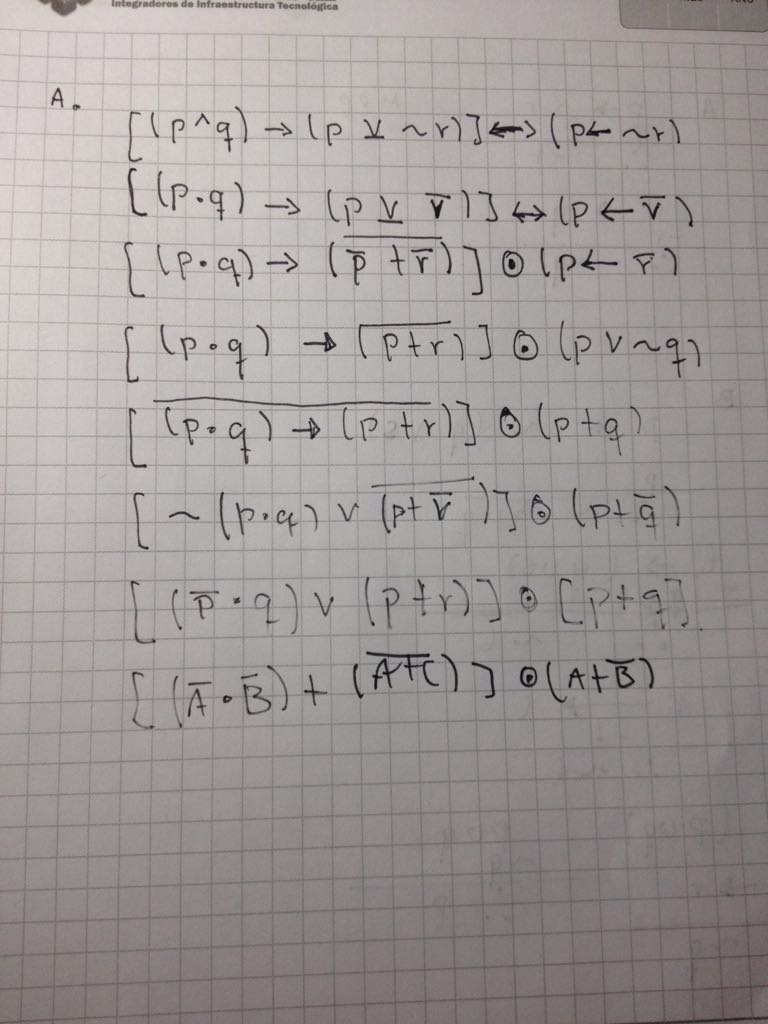 Integradores de Infraestructura Tecnológica
A.
[(p ^ q) → (p ⊻ ~r)] ↔ (p ← ~r)
[(p · q) → (p ⊻ r̅)] ↔ (p ← r̅)
[(p · q) → (\overline{p̅ + r̅})] ⊙ (p ← r̅)
[(p · q) → \overline{(p + r)}] ⊙ (p ∨ ~q)
[\overline{(p · q) → (p + r)}] ⊙ (p + q)
[~(p · q) ∨ \overline{(p + r̅)}] ⊙ (p + q̅)
[(p̅ · q) ∨ (p + r)] ⊙ [p + q]
[(A̅ · B̅) + (\overline{A + C})] ⊙ (A + B̅)